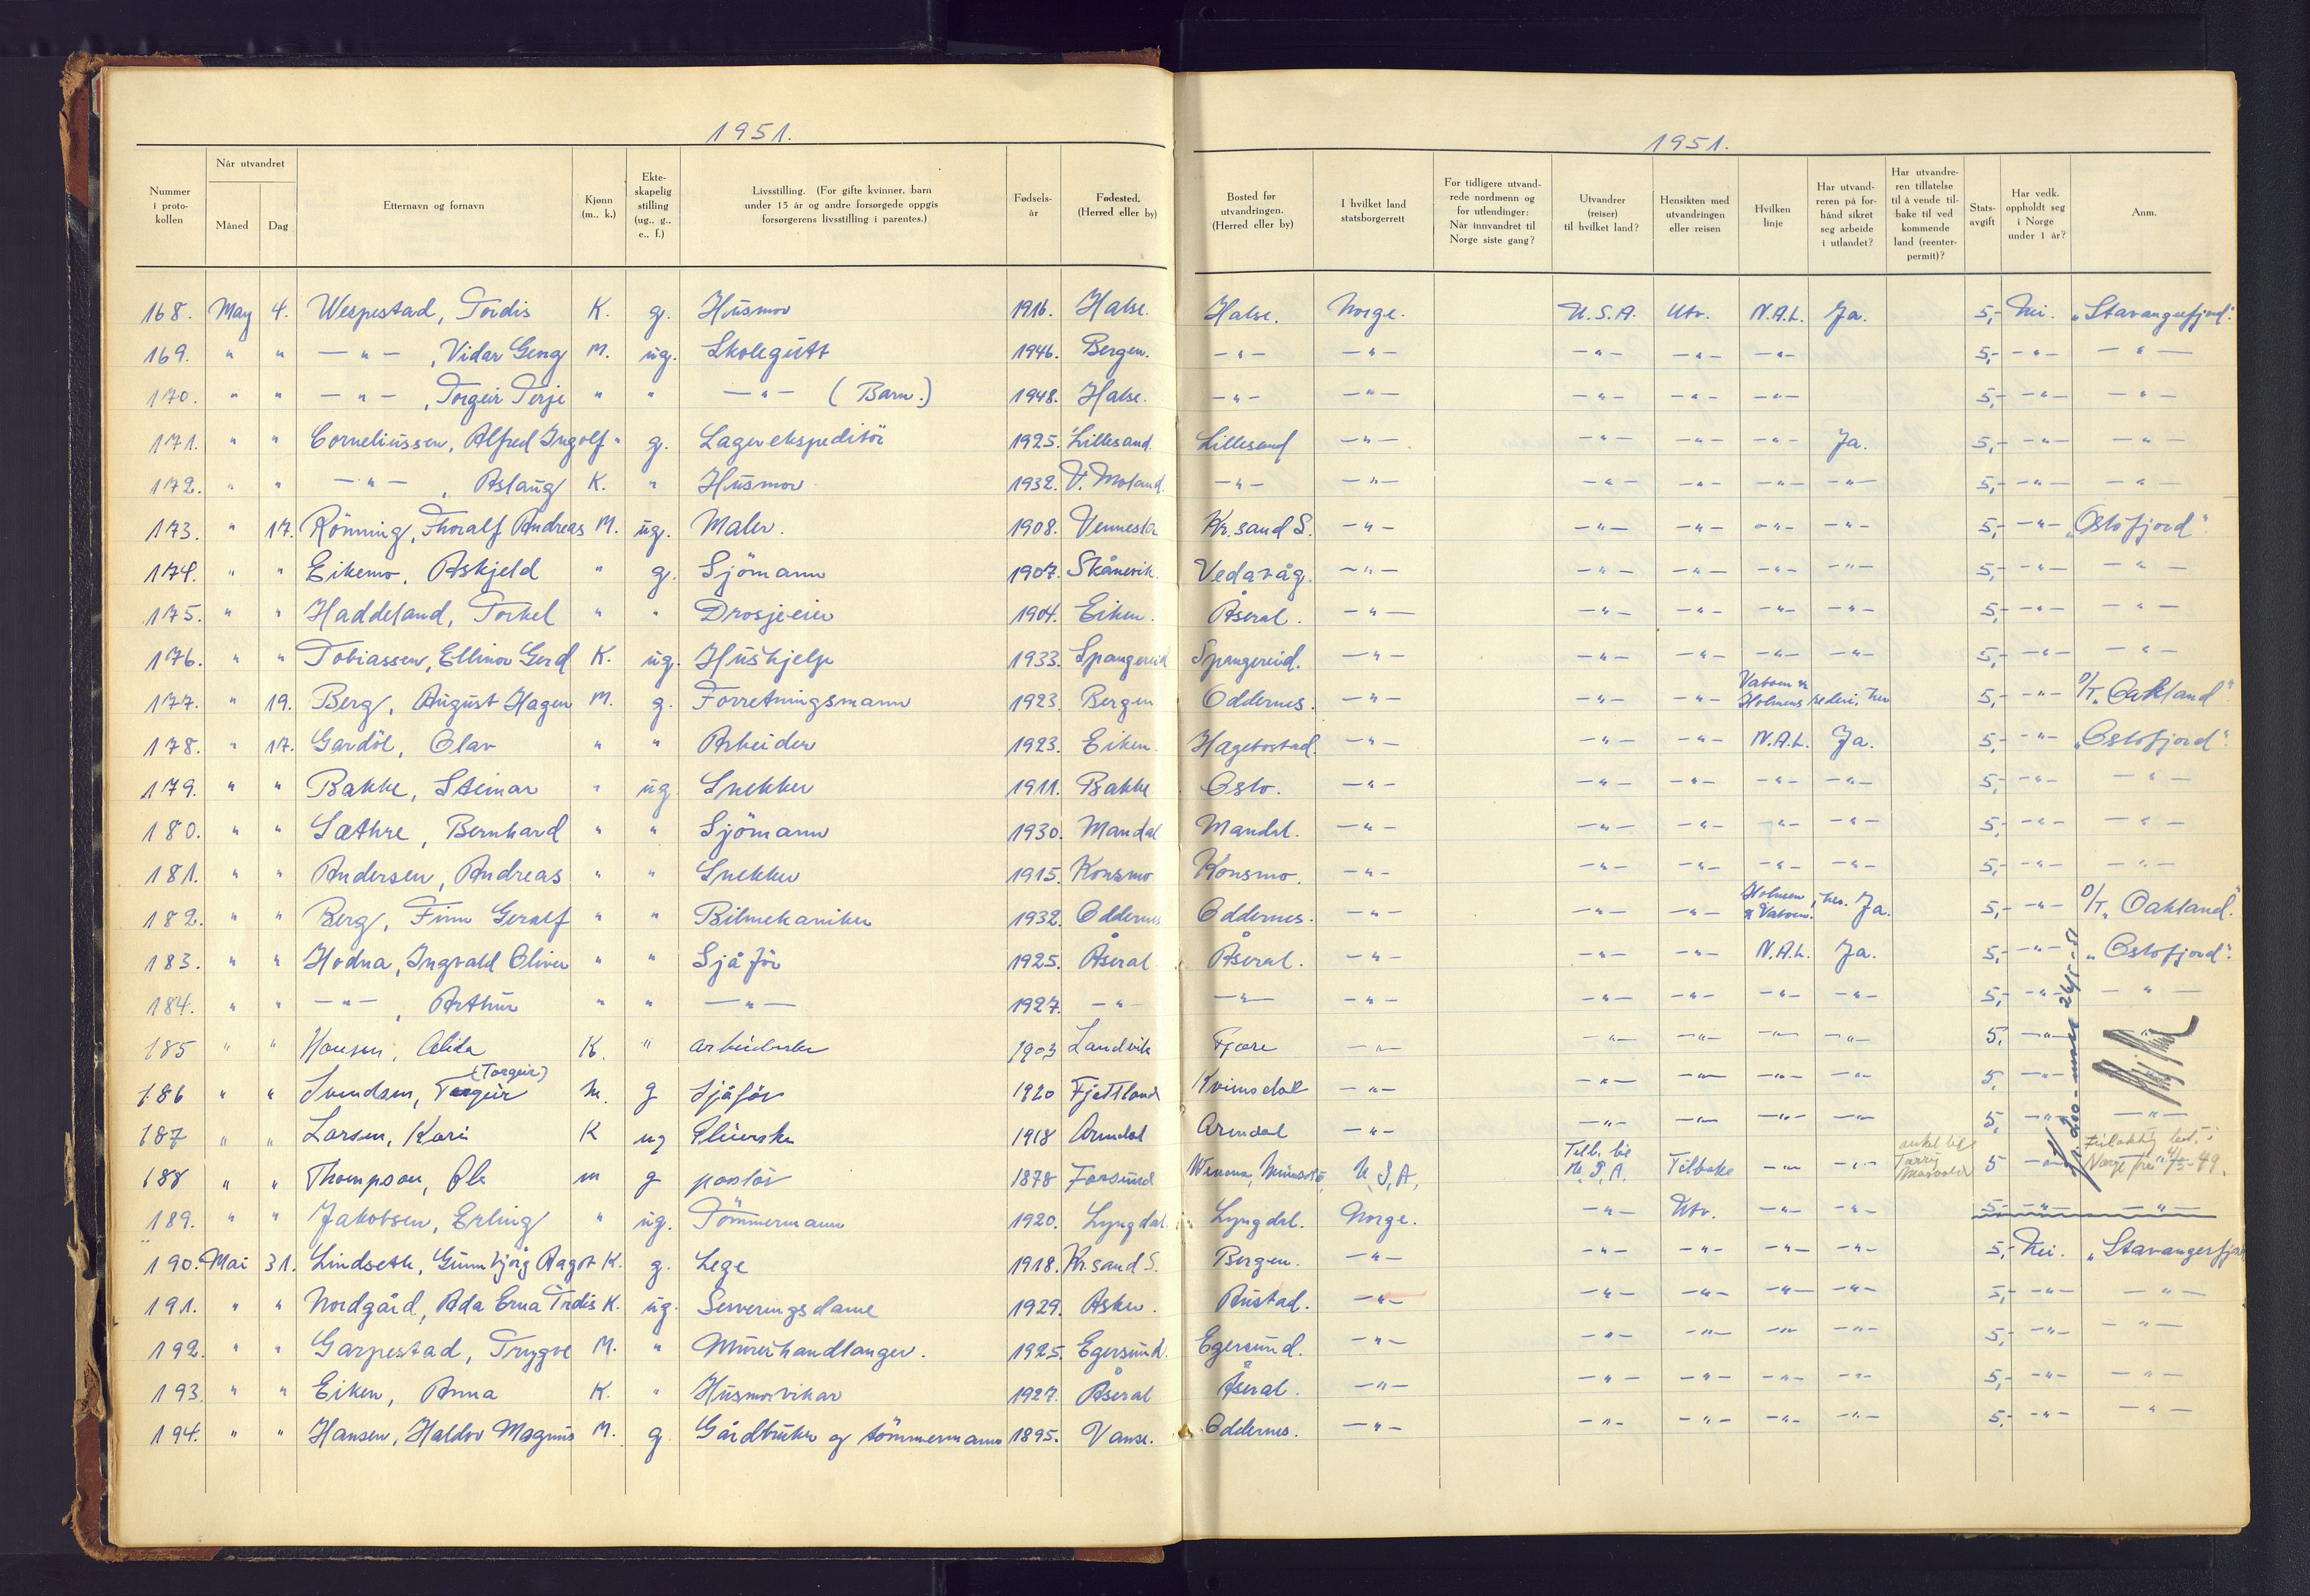 1951.
1951.
Nummer i proto- kollen | Når utvandret Måned Dag | Etternavn og fornavn | Kjønn (m., k.) | Ekte- skapelig stilling (ug., g., e., f.) | Livsstilling. (For gifte kvinner, barn under 15 år og andre forsørgede oppgis forsørgerens livsstilling i parentes.) | Fødsels- år | Fødested. (Herred eller by) | Bosted før utvandringen. (Herred eller by) | I hvilket land statsborgerrett | For tidligere utvand- rede nordmenn og for utlendinger: Når innvandret til Norge siste gang? | Utvandrer (reiser) til hvilket land? | Hensikten med utvandringen eller reisen | Hvilken linje | Har utvand- reren på for- hånd sikret seg arbeide i utlandet? | Har utvandre- ren tillatelse til å vende til- bake til ved kommende land (reenter- permit)? | Stats- avgift | Har vedk. oppholdt seg i Norge under 1 år? | Anm.
168. May 4. Wespestad, Tordis K. g. Husmor 1916. Halse. Halse. Norge. U.S.A. Utv. N.A.L. Ja. 5,- Nei. "Stavangerfjord".
169. " " —"— , Vidar Georg M. ug. Skolegutt 1946. Bergen. —"— —"— —"— —"— —"— 5,- —"— —"—
170. " " —"— , Torgeir Terje " " —"— (Barn.) 1948. Halse. —"— —"— —"— —"— —"— 5,- —"— —"—
171. " " Corneliussen, Alfred Ingolf " g. Lagerekspeditör 1925. Lillesand. Lillesand —"— —"— —"— —"— Ja. 5,- —"— —"—
172. " " —"— , Aslaug K. " Husmor 1932. V. Moland. —"— —"— —"— —"— —"— —"— 5,- —"— —"—
173. " 17. Rönning, Thoralf Andreas M. ug. Maler. 1908. Vennesla Kr.sand S. —"— —"— —"— —"— —"— 5,- —"— "Oslofjord".
174. " " Eikemo, Askjeld " g. Sjömann 1907. Skånevik. Vedavåg. —"— —"— —"— —"— —"— 5,- —"— —"—
175. " " Haddeland, Torkel " " Drosjeeier 1904. Eiken. Åseral. —"— —"— —"— —"— —"— 5,- —"— —"—
176. " " Tobiassen, Ellinor Gerd K. ug. Hushjelp 1933. Spangereid Spangereid. —"— —"— —"— —"— —"— 5,- —"— —"—
177. " 19. Berg, August Hagen M. g. Forretningsmann 1923. Bergen Oddernes. —"— —"— —"— Holmens rederi, her 5,- —"— D/T. "Oakland".
178. " 17. Gardöl, Olav " " Arbeider 1923. Eiken. Hægebostad. —"— —"— —"— N.A.L. Ja. 5,- —"— "Oslofjord".
179. " " Bakke, Steinar " ug. Snekker 1911. Bakke Oslo. —"— —"— —"— —"— —"— 5,- —"— —"—
180. " " Sæthre, Bernhard " " Sjömann 1930. Mandal Mandal. —"— —"— —"— —"— —"— 5,- —"— —"—
181. " " Andersen, Andreas " " Snekker 1915. Konsmo Konsmo. —"— —"— —"— —"— —"— 5,- —"— —"—
182. " " Berg, Finn Geralf " " Bilmekaniker 1932. Oddernes Oddernes. —"— —"— —"— her. Ja. 5,- —"— D/T. "Oakland".
183. " " Hodna, Ingvald Oliver " " Sjåför 1925. Åseral Åseral. —"— —"— —"— N.A.L. Ja. 5,- —"— "Oslofjord".
184. " " —"— , Arthur " " —"— 1927. —"— —"— —"— —"— —"— —"— —"— 5,- —"— —"—
185 " " Hansen, Alida K. " arbeiderske 1903 Landvik Fjære —"— —"— —"— —"— —"— 5, —"—
186 " " Svendsen, Torgeir (Torgeir) M. g sjåför 1920 Fjotland Kvinesdal —"— —"— —"— —"— —"— 5, —"—
187 " " Larsen, Kari K ug 1918 Arendal Arendal —"— —"— —"— —"— —"— 5, —"— —"—
188 " " Thompson, Ole m g pastör 1878 Farsund U.S.A. Tilb. til U.S.A. Tilbake —"— —"— 5 —"— Norge
189. " " Jakobsen, Erling " ug. Tömmermann 1920. Lyngdal. Lyngdal. Norge. —"— Utv. —"— —"— 5,- —"— —"—
190. Mai 31. Lindseth, Gunnbjörg Ragot K. g. Lege 1918. Kr.sand S. Bergen. —"— —"— —"— —"— —"— 5,- Nei. "Stavangerfjord
191. " " Nordgård, Ada Erna Trdis K. ug. Serveringsdame 1929. Asker. Austad. —"— —"— —"— —"— —"— 5,- —"— —"—
192. " " Garpestad, Trygve M. " Murerhandlanger. 1925. Egersund. Egersund. —"— —"— —"— —"— —"— 5,- —"— —"—
193. " " Eiken, Anna K. " Husmorvikar 1927. Åseral Åseral. —"— —"— —"— —"— —"— 5,- —"— —"—
194. " " Hansen, Haldor Magnus M. g. Gårdbruker og tömmermann 1895. Vanse. Oddernes. —"— —"— —"— —"— —"— 5,- —"— —"—